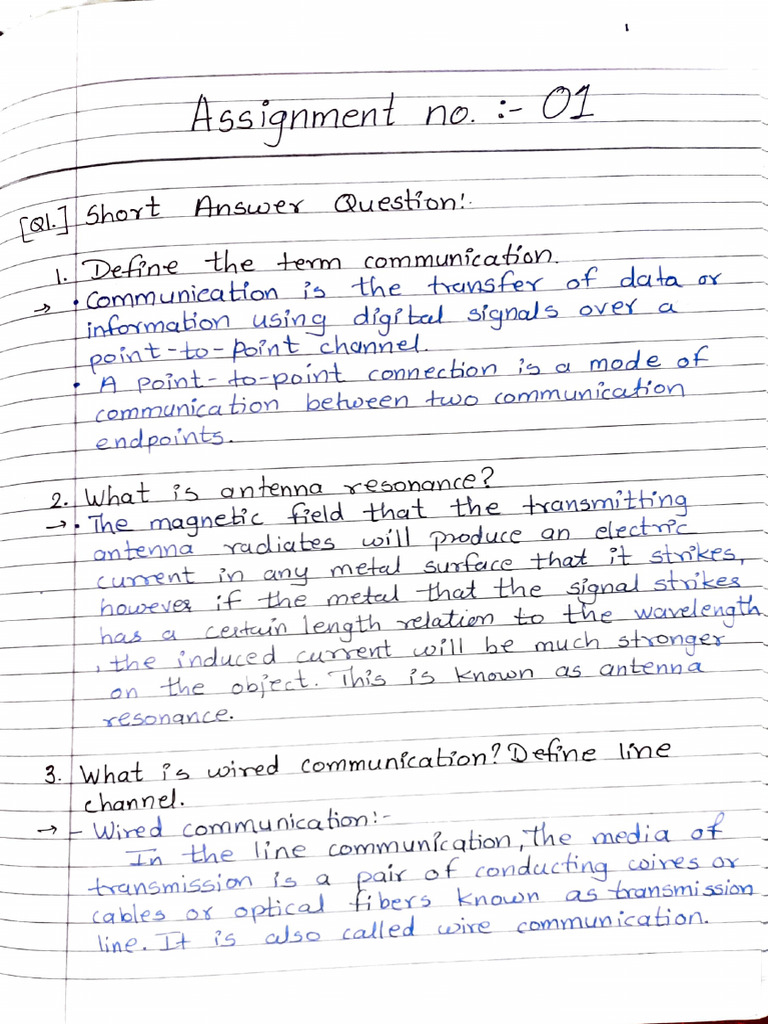 1
Assignment no. :- 01
[Q1.] Short Answer Question:.
1. Define the term communication.
→ • Communication is the transfer of data or
information using digital signals over a
point-to-point channel.
• A point-to-point connection is a mode of
communication between two communication
endpoints.
2. What is antenna resonance?
→ • The magnetic field that the transmitting
antenna radiates will produce an electric
current in any metal surface that it strikes,
however if the metal that the signal strikes
has a certain length relation to the wavelength
, the induced current will be much stronger
on the object. This is known as antenna
resonance.
3. What is wired communication? Define line
channel.
→ - Wired communication:-
In the line communication, the media of
transmission is a pair of conducting wires or
cables or optical fibers known as transmission
line. It is also called wire communication.